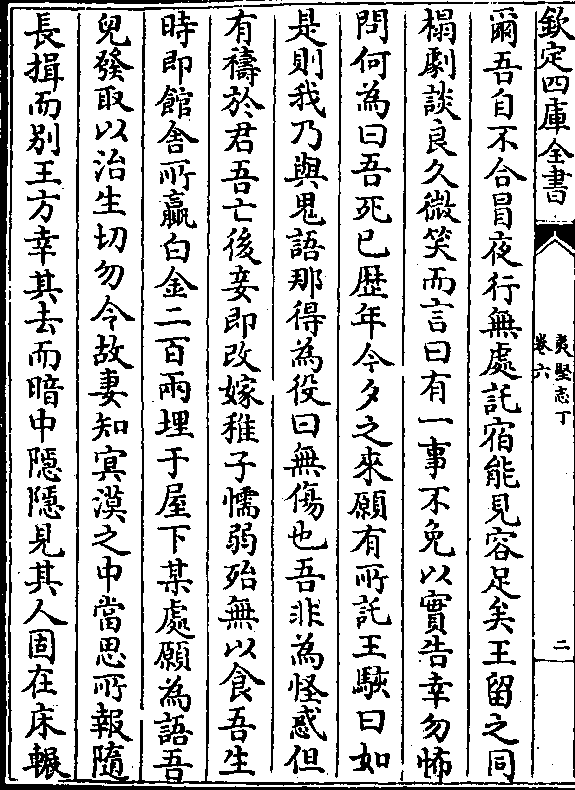 欽定四庫全書
夷堅志丁
卷六
二
爾吾自不合冒夜行無處託宿能見容足矣王留之同
榻劇談良久微笑而言曰有一事不免以實告幸勿怖
問何為曰吾死已歴年今夕之來願有所託王駭曰如
是則我乃與鬼語那得為役曰無傷也吾非為怪惑但
有禱於君吾亡後妾即改嫁稚子懦弱殆無以食吾生
時即館舍所贏白金二百兩埋于屋下某處願為語吾
兒發取以治生切勿令故妻知冥漠之中當思所報隨
長揖而别王方幸其去而暗中隱隱見其人固在床輾